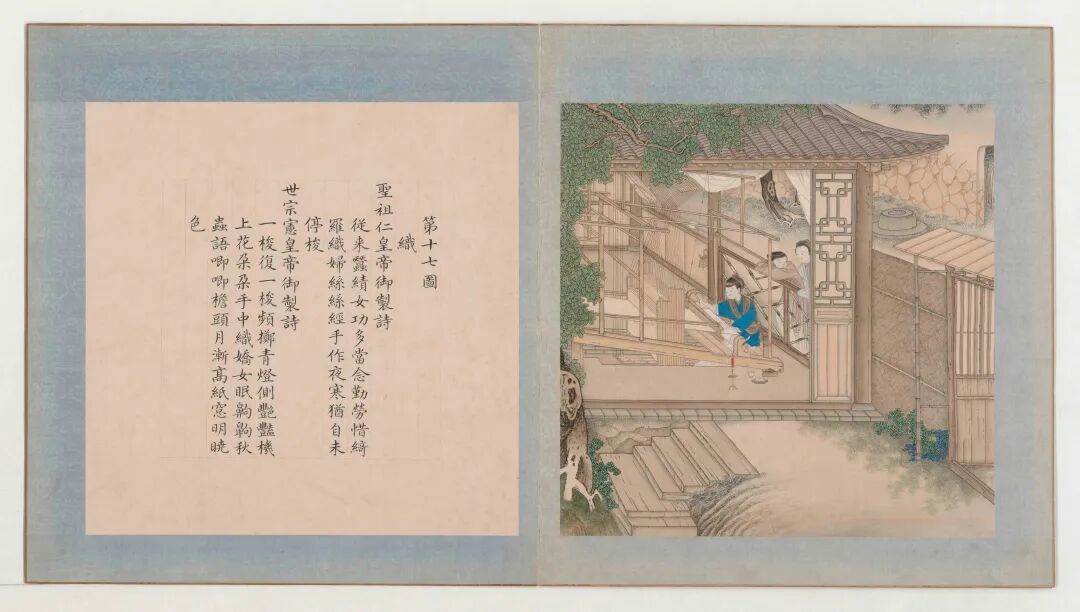 第十七圖
織
聖祖仁皇帝御製詩
從来蠶績女功多當念勤勞惜綺
羅織婦絲絲經手作夜寒猶自未
停梭
世宗憲皇帝御製詩
一梭復一梭頻擲青燈側艷豔機
上花朶朶手中織嬌女眠齁齁秋
蟲語唧唧檐頭月漸高紙窓明曉
色